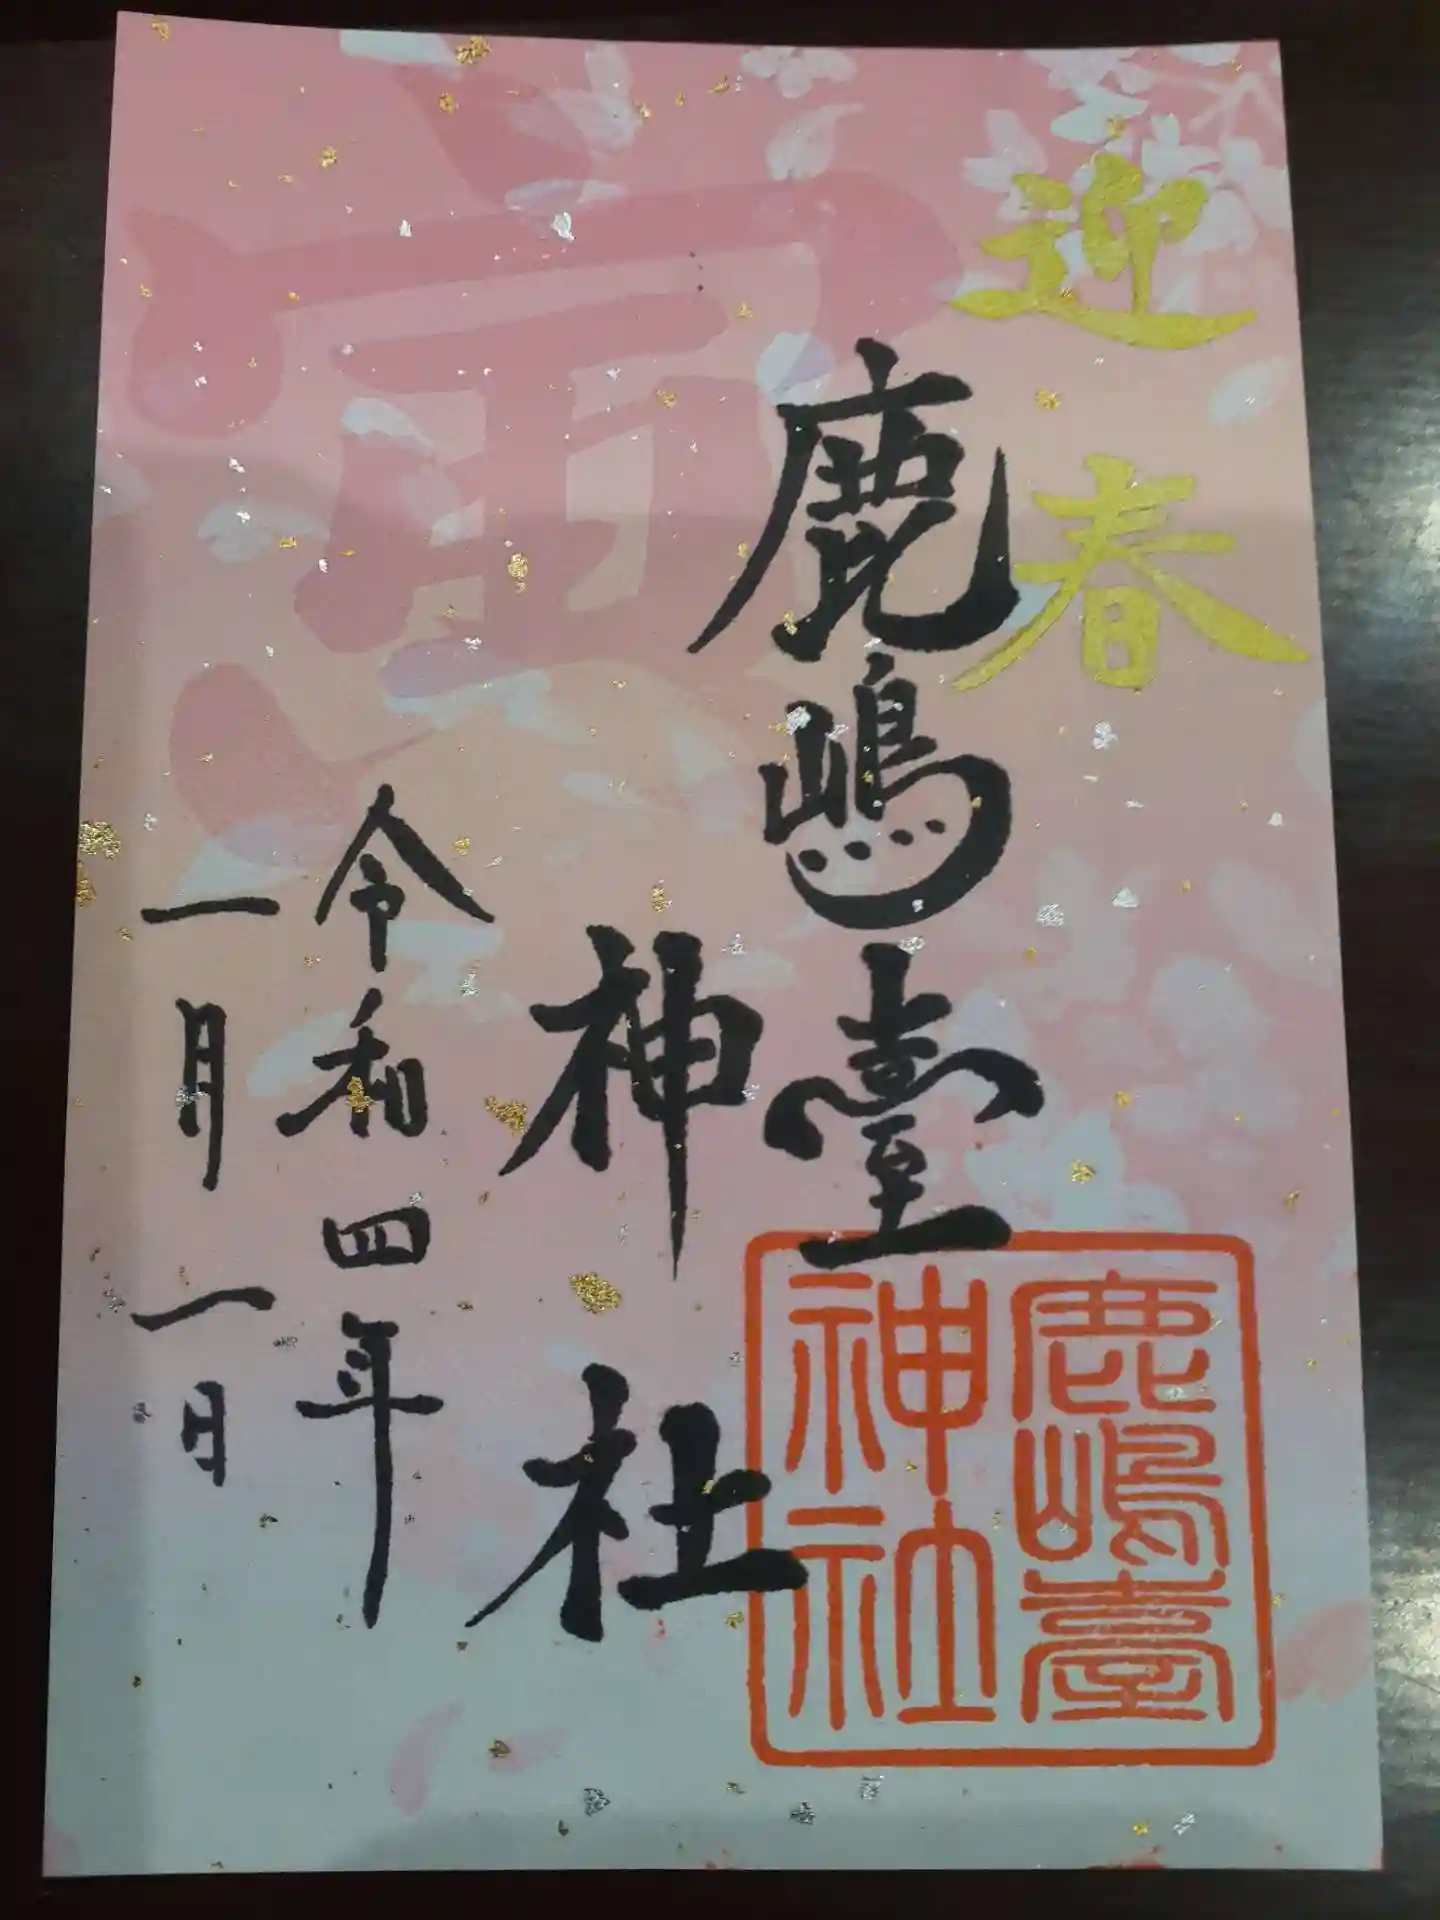 迎春
鹿嶋臺
神社
令和四年
一月一日
寅
鹿嶋臺
神社